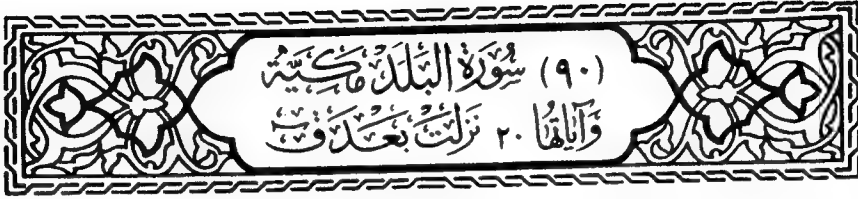 (٩٠) سُورَة البَلَدْ مَكِيَّة
وَآيَاتَها ٢٠ نَزَلَتْ بَعْدَ قَ